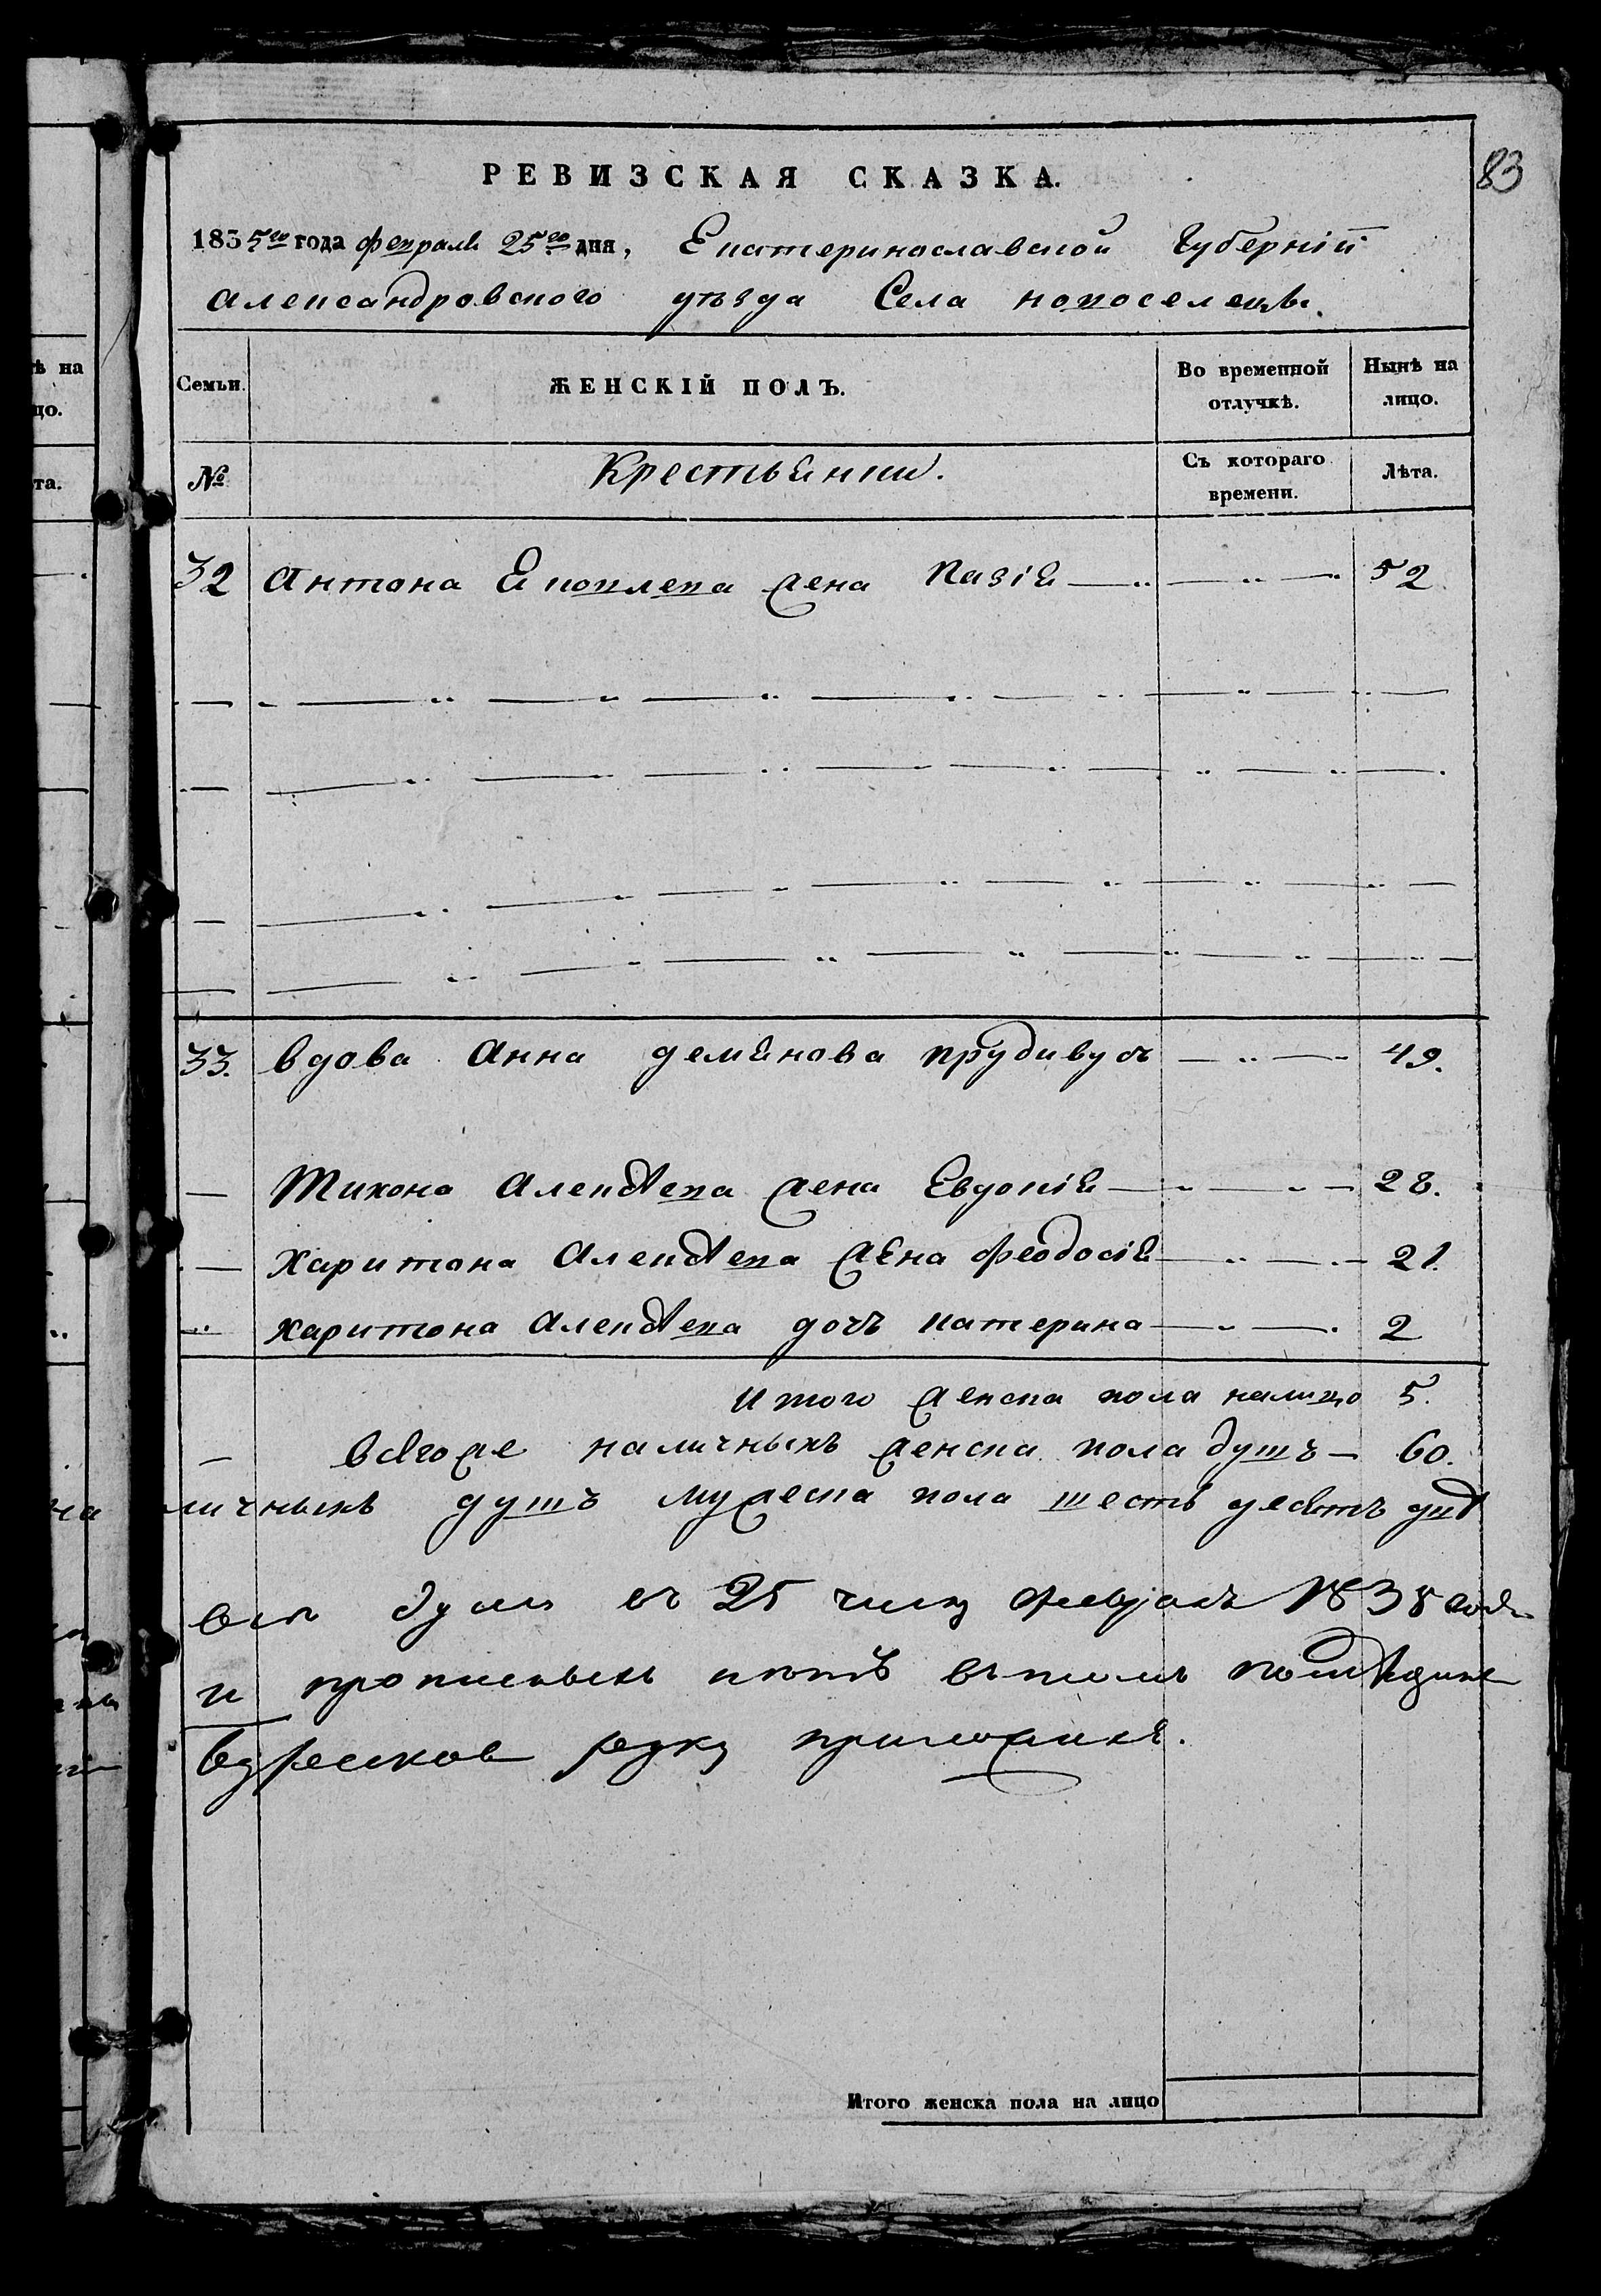 83
РЕВИЗСКАЯ СКАЗКА.
1835го года февраля 25го дня, Екатеринославской Губернiи
Александровского уѣзда Села новоселекъ.
Семьи. ЖЕНСКІЙ ПОЛЪ. Во временной отлучкѣ. Нынѣ на лицо.
№ Крестьянки. Съ котораго времени. Лѣта.
32 Антона Яковлева жена Назія 52
33. вдова Анна демянова прудивусъ 49.
Тихона Алексѣева жена Евдокія 28.
Харитона Алексѣева жена Феодосія 21.
Харитона Алексѣева дочъ катерина 2
Итого женска пола налицо 5.
всегоже наличныхъ женска пола душъ 60.
личныхъ душъ мужеска пола шесть десятъ
душъ 25 числу 1835 года
и прописныхъ нѣтъ въ томъ
руку приложилъ.
Итого женска пола на лицо